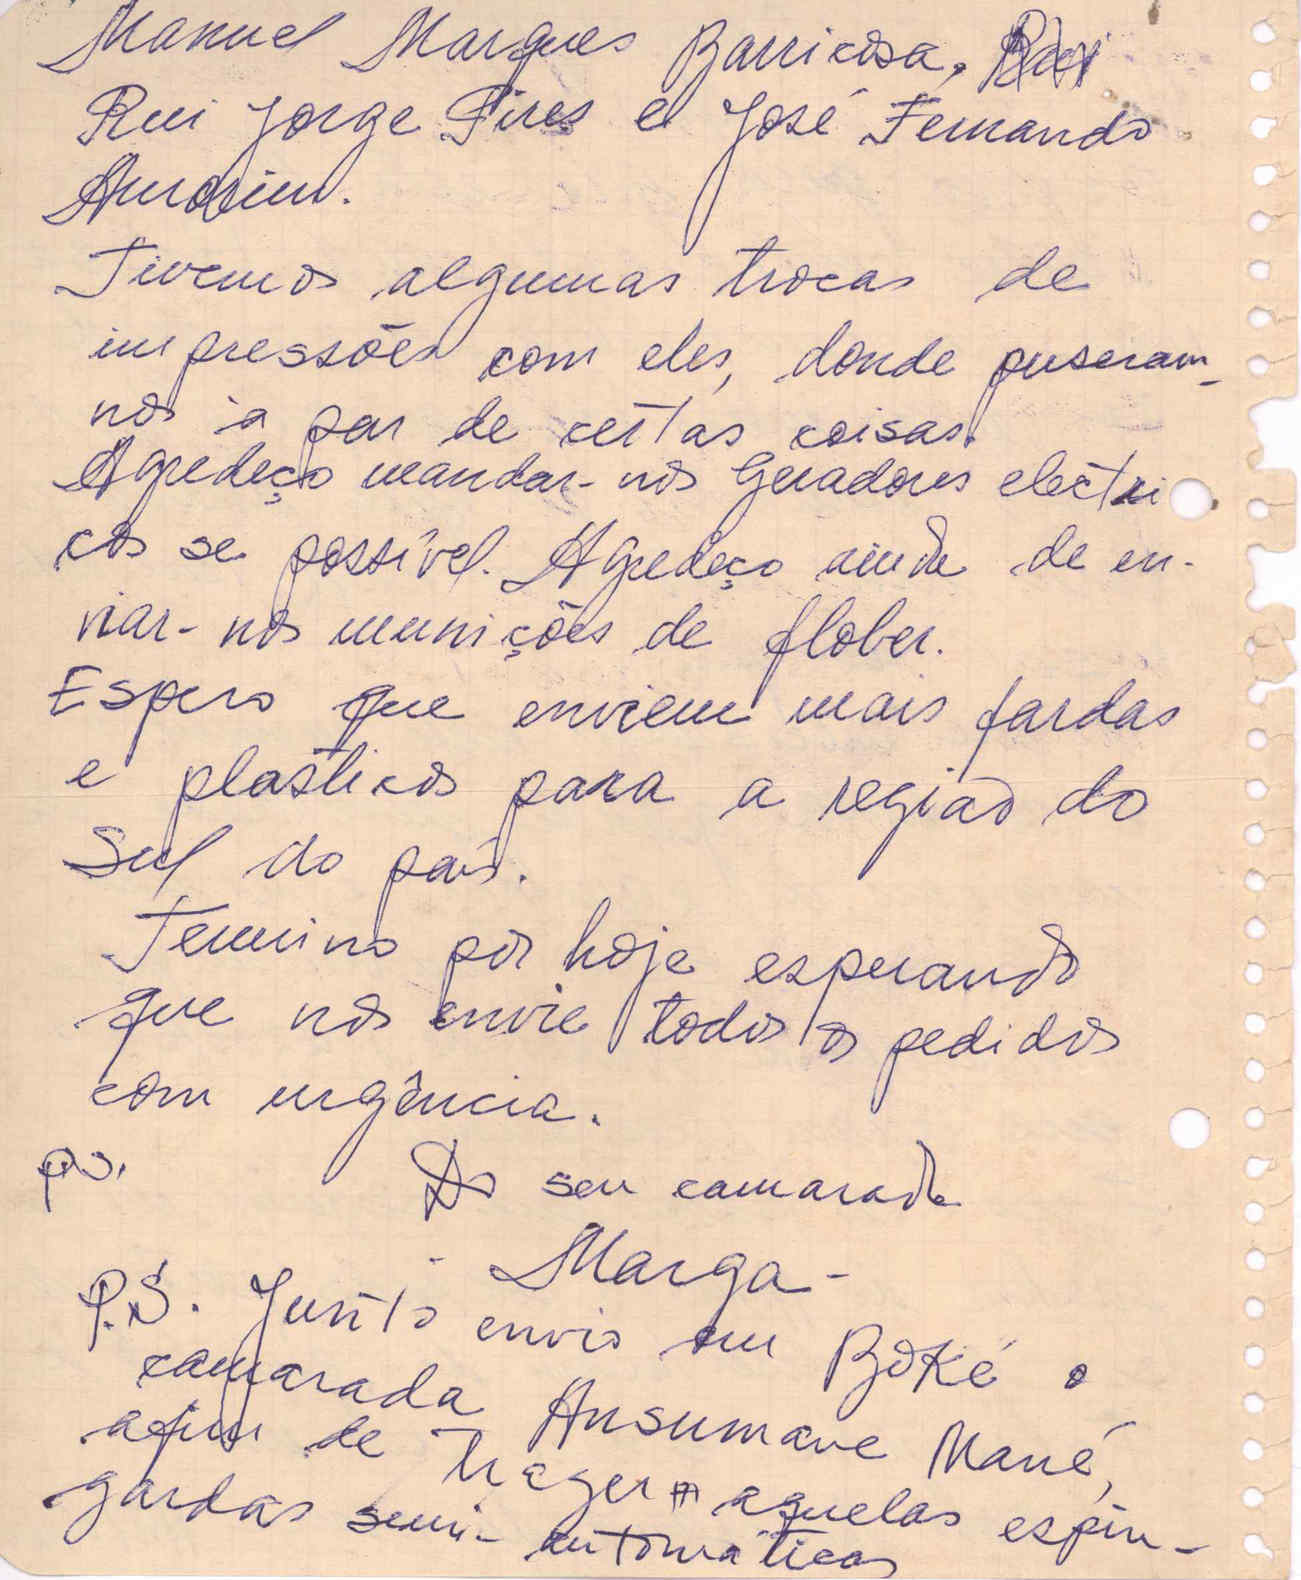 Manuel Marques Barricosa, Rui
Rui Jorge Pires e José Fernando
Amorim.
Tivemos algumas trocas de
impressões com eles, donde puseram-
nos a par de certas coisas.
Agredeço mandar-nos Geradores electri
cos se possível. Agredeço ainda de en-
viar-nos munições de flober.
Espero que enviem mais fardas
e plasticos para a região do
Sul do país.
Termino por hoje esperando
que nos envie todos os pedidos
com urgência.
Do seu camarada
Marga-
P.S. Junto envio em Boké o
camarada Ansumane Mané,
afim de trazer aquelas espin-
gardas semi-automáticas